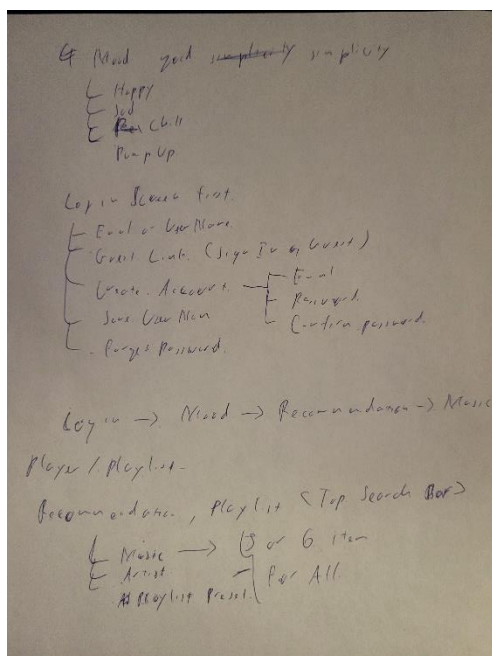 4 Mood grid simplicity simplicity
Happy
Sad
Chill
Pump Up
Login Screen first.
Email or User Name.
Guest Link. (Sign In as Guest)
Create Account.
Email
Password.
Confirm password.
Save User Name
Forget Password.
Login → Mood → Recommendation → Music
Player / Playlist
Recommendation, Playlist (Top Search Bar)
Music → 6 item
Artist
For All.
Playlist